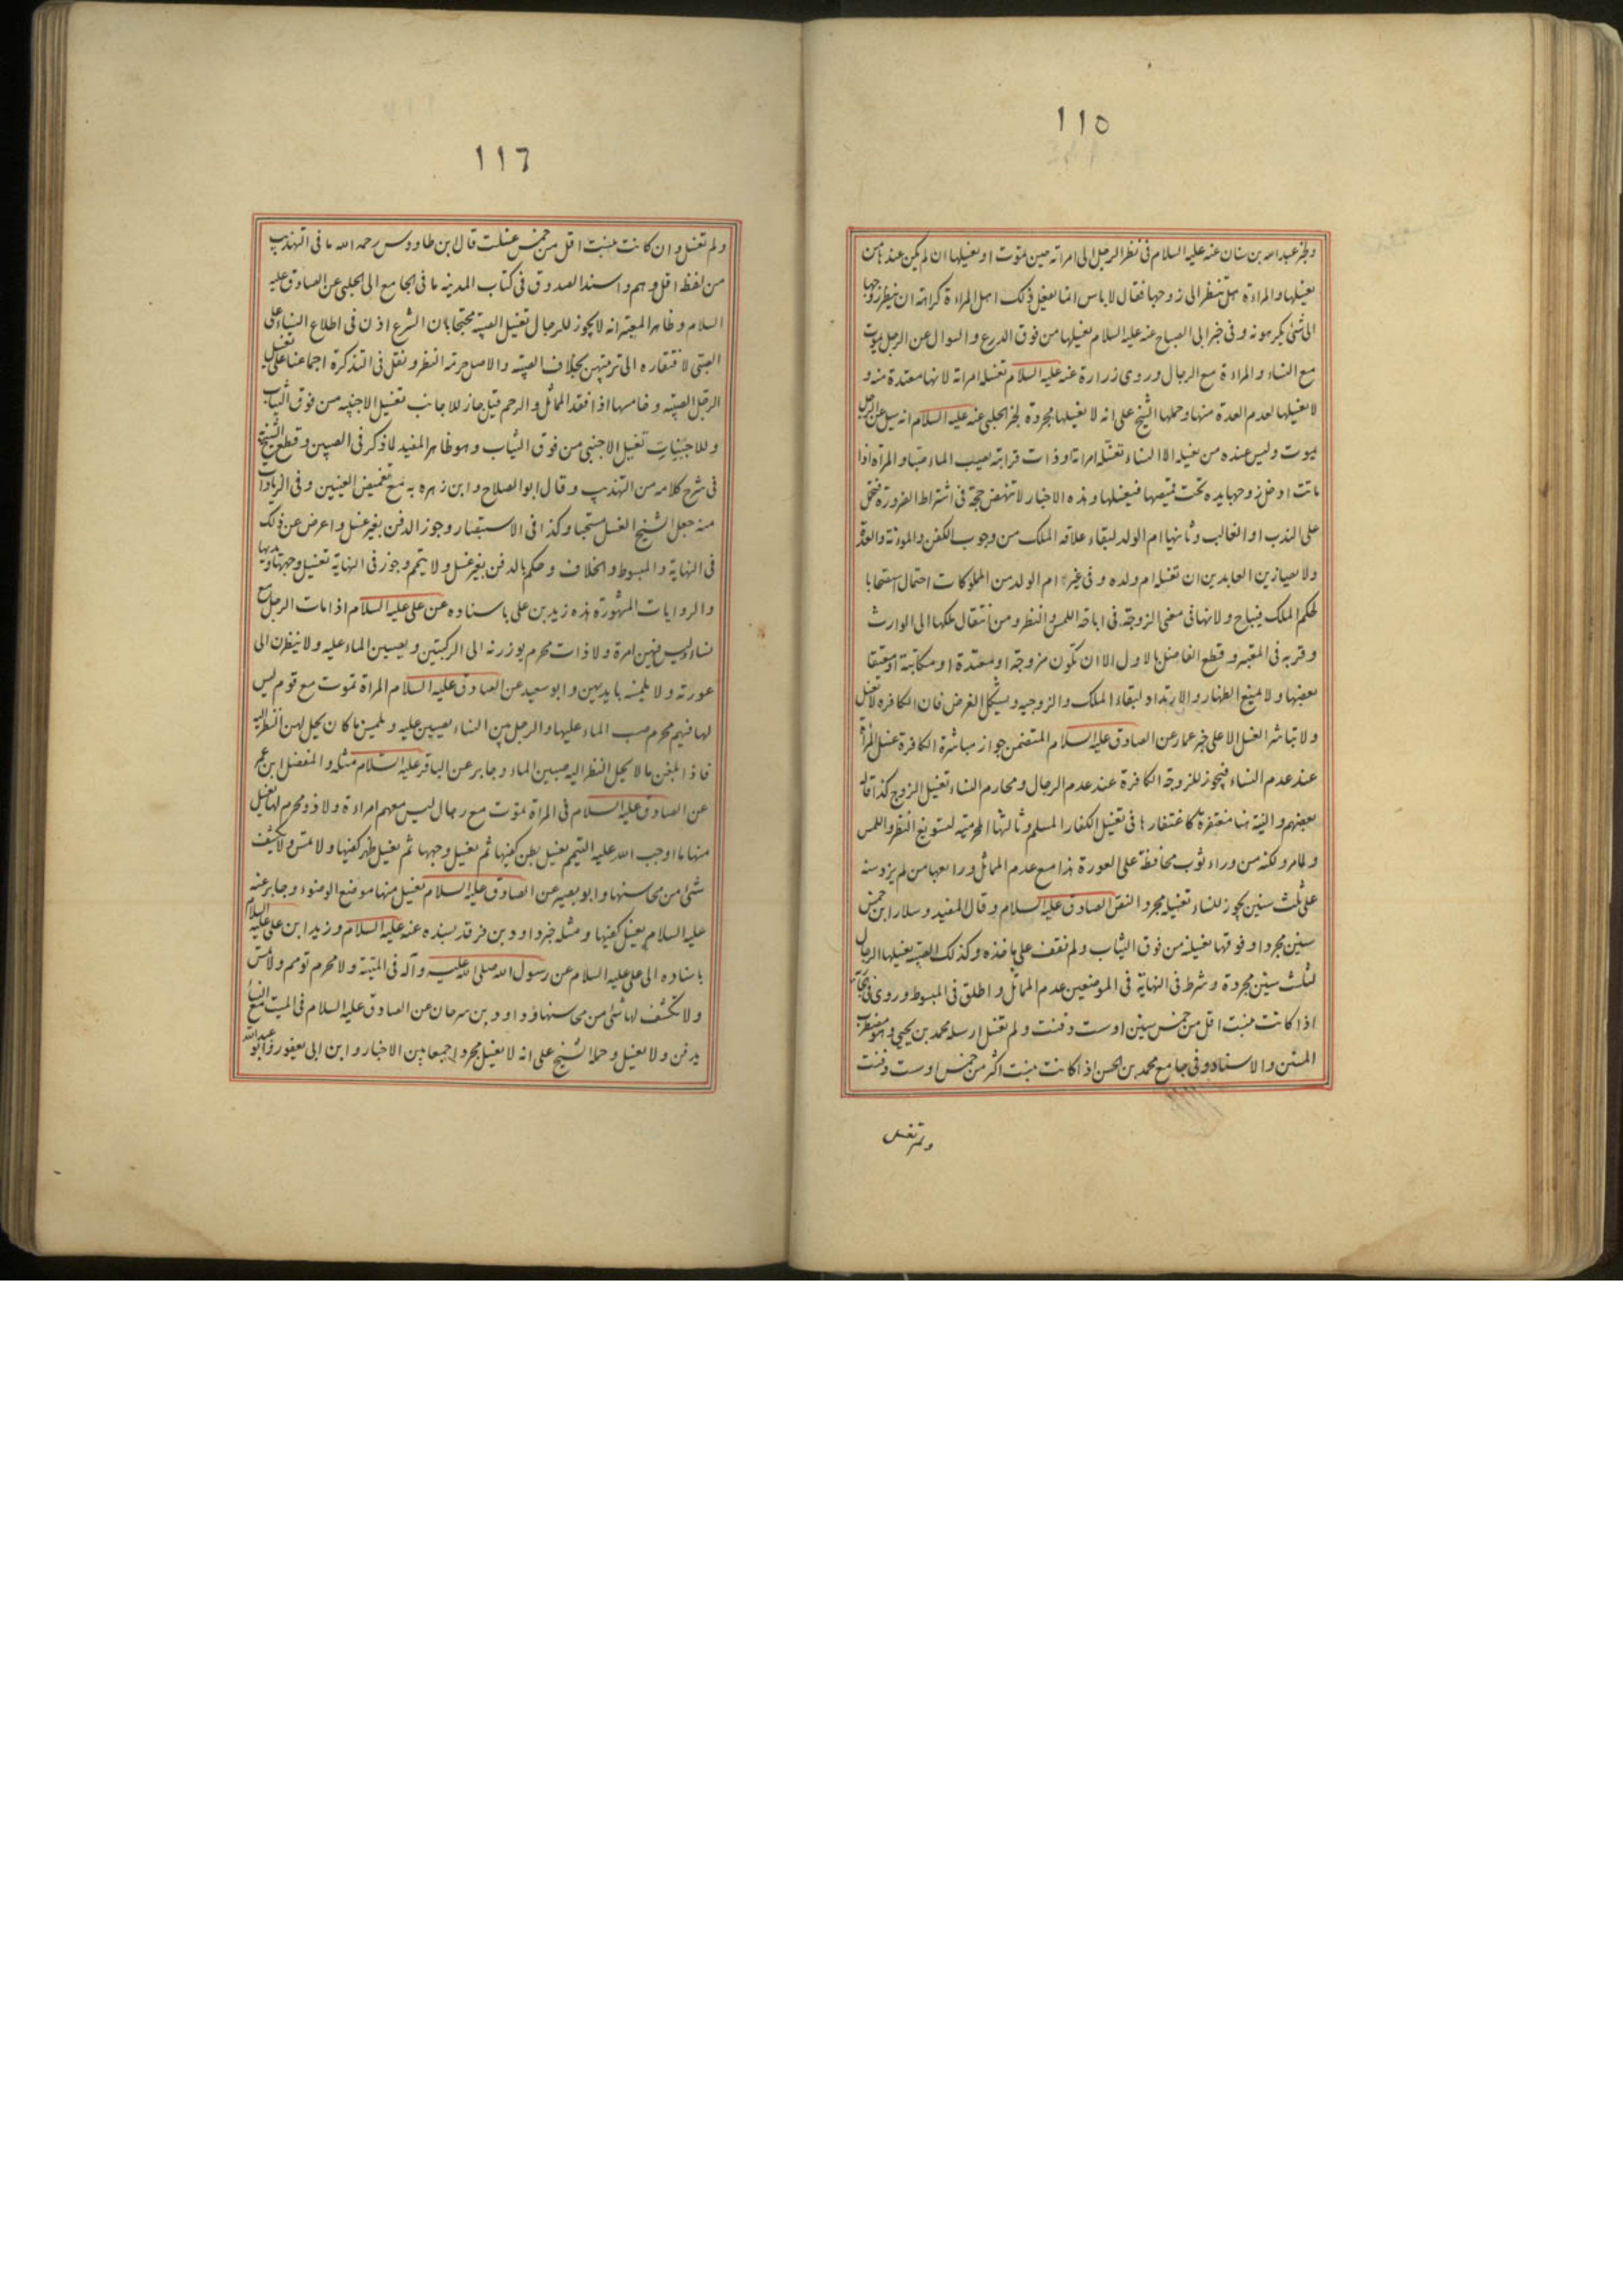 ١١٥
ولخبر عبد الله بن سنان عنه عليه السلام فى نظر الرجل الى امراته حين تموت او يغسلها ان لم يكن عندها من
يغسلها والمراءة هل تنظر الى زوجها فقال لا باس انما يفعل ذلك اهل المراءة كراهة ان ينظر زوجها
الى شئ يكرهونه وفى خبر ابى الصباح عنه عليه السلام يغسلها من فوق الدرع والسوال عن الرجل يموت
مع النساء والمراءة مع الرجال وروى زرارة عنه عليه السلام تغسله امراته لانها معتدة منه و
لا يغسلها لعدم العدة منها وحملها الشيخ على انه لا يغسلها مجردة لخبر الحلبى عنه عليه السلام انه سيل عن الرجل
يموت وليس عنده من يغسله الا النساء تغسله امراته او ذات قرابته يصب الماء صبا والمراة اذا
ماتت ادخل زوجها يده تحت قميصها فيغسلها وهذه الاخبار لا تنهض حجة فى اشتراط الضرورة فتحمل
على الندب او الغالب وثانيها ام الولد لبقاء علاقه الملك من وجوب الكفن والمونة والعدة
ولايصا زين العابدين ان تغسله ام ولده وفى غير ام الولد من المملوكات احتمال استصحابا
لحكم الملك فيباح ولانها فى معنى الزوجة فى اباحة اللمس والنظر ومن انتقال ملكها الى الوارث
وقربه فى المعتبر وقطع الفاضل بالاول الا ان تكون مزوجة او معتدة او مكاتبة او معتقا
بعضها ولا يمنع الظهار والارتداد لبقاء الملك والزوجيه ويشكل الفرض فان الكافره لا تغسل
ولا تباشر الغسل الا على خبر عمار عن الصادق عليه السلام المتضمن جواز مباشرة الكافرة غسل المراة
عند عدم النساء فيجوز للزوجة الكافرة عند عدم الرجال ومحارم النساء تغسيل الزوج كذا قاله
بعضهم والنية هنا مغتفرة كاغتفارها فى تغسيل الكفار المسلم وثالثها المحرميه لتسويغ النظر واللمس
ولما مر ولكنه من وراء ثوب محافظة على العورة هذا مع عدم المماثل ورابعها من لم يزد سنه
على ثلث سنين يجوز للنساء تغسيله مجردا لنص الصادق عليه السلام وقال المفيد وسلار ابن خمس
سنين مجردا وفوقها تغسيله من فوق الثياب ولم نقف على ماخذه وكذلك الصبية يغسلها الرجال
لثلث سنين مجردة وشرط فى النهاية فى الموضعين عدم المماثل واطلق فى المبسوط وروى فى
اذا كانت بنت اقل من خمس سنين او ست دفنت ولم تغسل ارسله محمد بن يحيى وهو مضطرب
المتن والاسناد وفى جامع محمد بن الحسن اذا كانت بنت اكثر من خمس او ست دفنت
ولم تغسل
١١٦
ولم تغسل وان كانت بنت اقل من خمس غسلت قال ابن طاووس رحمه الله ما فى التهذيب
من لفظ اقل وهم واسند الصدوق فى كتاب المدينه ما فى الجامع الى الحلبى عن الصادق عليه
السلام وظاهر المعتبر انه لا يجوز للرجال تغسيل الصبية محتجا بان الشرع اذن فى اطلاع النساء على
الصبى لافتقاره الى تربيتهن بخلاف الصبية والاصل حرمة النظر ونقل فى التذكرة اجماعنا على تغسيل
الرجل الصبية وخامسها اذا فقد المماثل والرحم قيل جاز للاجانب تغسيل الاجنبيه من فوق الثياب
وللاجنبيات تغسيل الاجنبى من فوق الثياب وهو ظاهر المفيد لما ذكر فى الصبيين وقطع به الشيخ
فى شرح كلامه من التهذيب وقال ابو الصلاح وابن زهره به مع تغميض العينين وفى الزيادات
منه جعل الشيخ الغسل مستحبا وكذا فى الاستبصار وجوز الدفن بغير غسل واعرض عن ذلك
فى النهاية والمبسوط والخلاف وحكم بالدفن بغير غسل ولا تيمم وجوز فى النهاية تغسيل وجهها ويديها
والروايات المشهورة هذه زيد بن على باسناده عن على عليه السلام اذا مات الرجل مع
نساء ليس فيهن امرة ولا ذات محرم يوزرنه الى الركبتين ويصببن الماء عليه ولا ينظرن الى
عورته ولا يلمسنه بايديهن وابو سعيد عن الصادق عليه السلام المراة تموت مع قوم ليس
لها فيهم محرم صب الماء عليها والرجل بين النساء يصببن عليه ويلمسن ما كان يحل لهن النظر اليه
فاذا بلغن ما لا يحل النظر اليه صببن الماء وجابر عن الباقر عليه السلام مثله والمفضل ابن عمر
عن الصادق عليه السلام فى المراة تموت مع رجال ليس معهم امراءة ولا ذو محرم لها يغسل
منها ما اوجب الله عليه التيمم يغسل بطن كفيها ثم يغسل وجهها ثم يغسل ظهر كفيها ولا تمس ولا يكشف
شئ من محاسنها وابو بصير عن الصادق عليه السلام يغسل منها موضع الوضوء وجابر عنه
عليه السلام يغسل كفيها ومثله خبر داود بن فرقد بسنده عنه عليه السلام وزيد ابن على عليه السلام
باسناده الى على عليه السلام عن رسول الله صلى الله عليه وآله فى الميتة ولا محرم تومم ولا تمس
ولا تكشف لها شئ من محاسنها وداود بن سرحان عن الصادق عليه السلام فى الميت مع النساء
يدفن ولا يغسل وحملها الشيخ على انه لا يغسل مجردا جمعا بين الاخبار وابن ابى يعفور وابو عبد الله